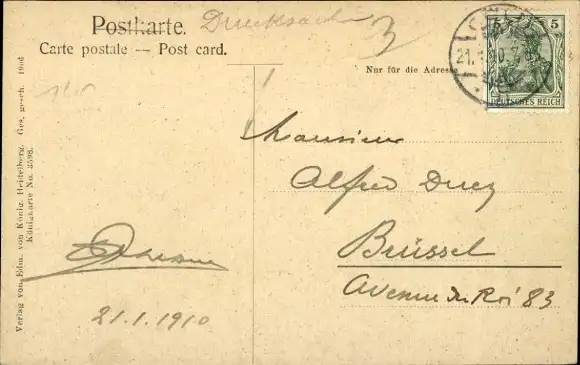 Postkarte. Drucksache
Carte postale — Post card.
3
Nur für die Adresse
5 5
DEUTSCHES REICH
Monsieur
Alfred Duez
Brüssel
Avenue du Roi 83
21.1.1910
Verlag von Edm. von König, Heidelberg. Ges. gesch. 1906
Königkarte No. 3598.